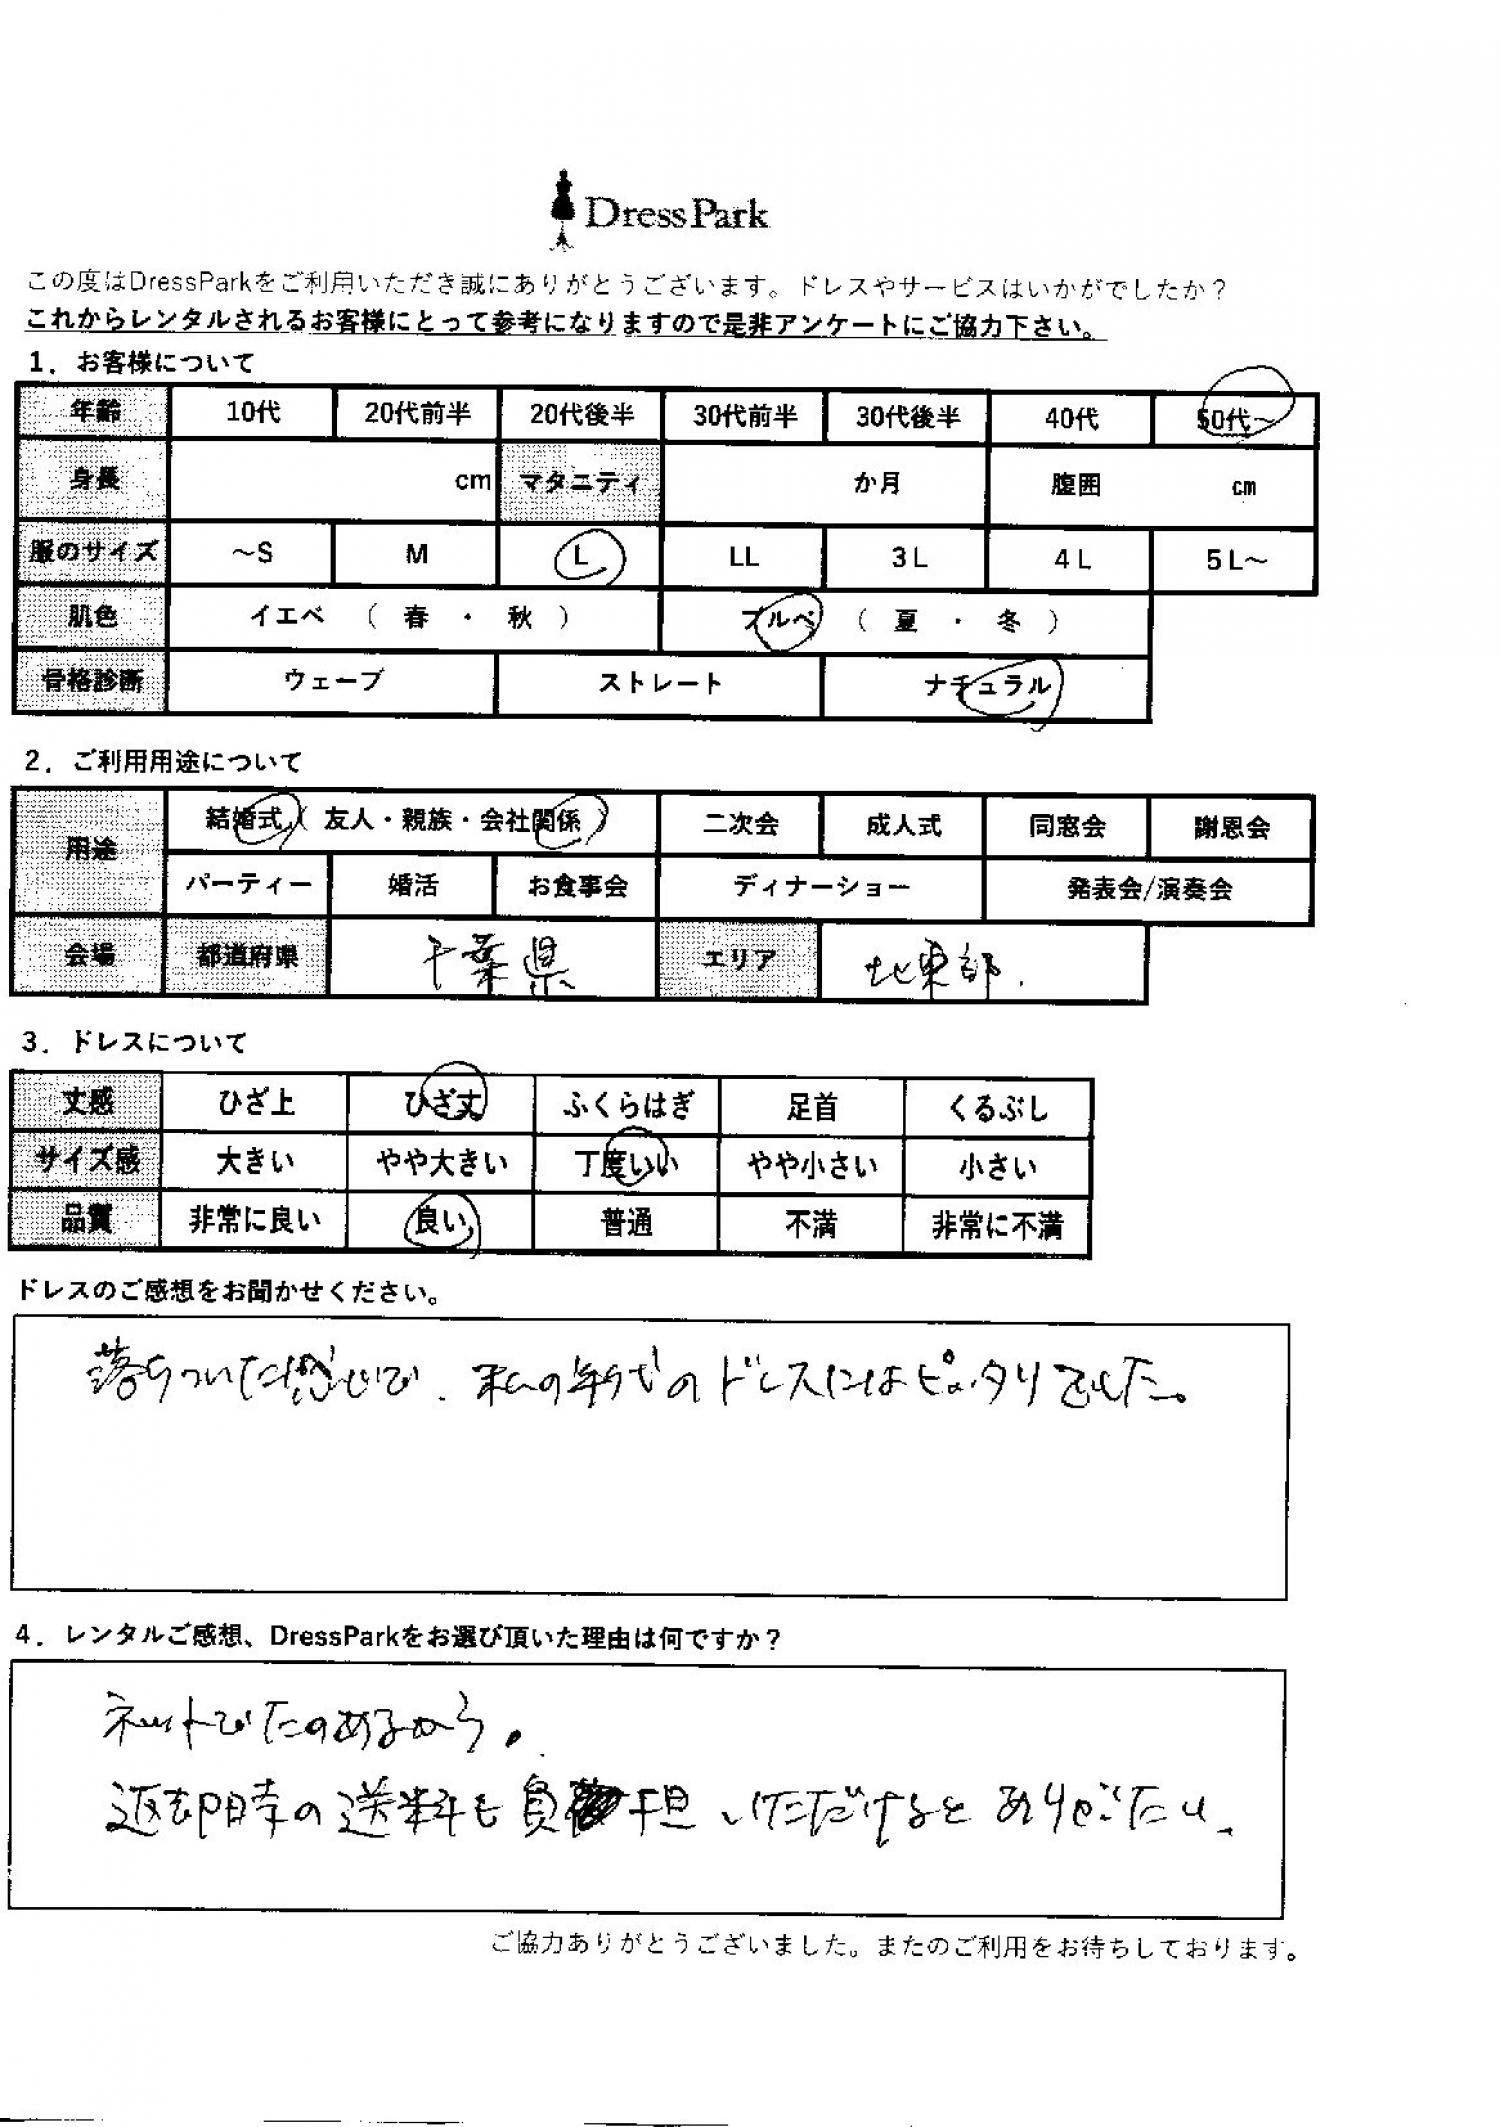 DressPark
この度はDressParkをご利用いただき誠にありがとうございます。ドレスやサービスはいかがでしたか？
これからレンタルされるお客様にとって参考になりますので是非アンケートにご協力下さい。
1．お客様について
年齢 10代 20代前半 20代後半 30代前半 30代後半 40代 50代～
身長 cm マタニティ か月 腹囲 cm
服のサイズ ～S M L LL 3L 4L 5L～
肌色 イエベ（ 春 ・ 秋 ） ブルベ（ 夏 ・ 冬 ）
骨格診断 ウェーブ ストレート ナチュラル
2．ご利用用途について
用途 結婚式（ 友人・親族・会社関係 ） 二次会 成人式 同窓会 謝恩会
パーティー 婚活 お食事会 ディナーショー 発表会/演奏会
会場 都道府県 千葉県 エリア 北東部.
3．ドレスについて
丈感 ひざ上 ひざ丈 ふくらはぎ 足首 くるぶし
サイズ感 大きい やや大きい 丁度いい やや小さい 小さい
品質 非常に良い 良い 普通 不満 非常に不満
ドレスのご感想をお聞かせください。
落ちついた感じで、私の年代のドレスにはピッタリでした。
4．レンタルご感想、DressParkをお選び頂いた理由は何ですか？
ネットで たのめるから。
返却時の送料も負担いただけるとありがたい、
ご協力ありがとうございました。またのご利用をお待ちしております。